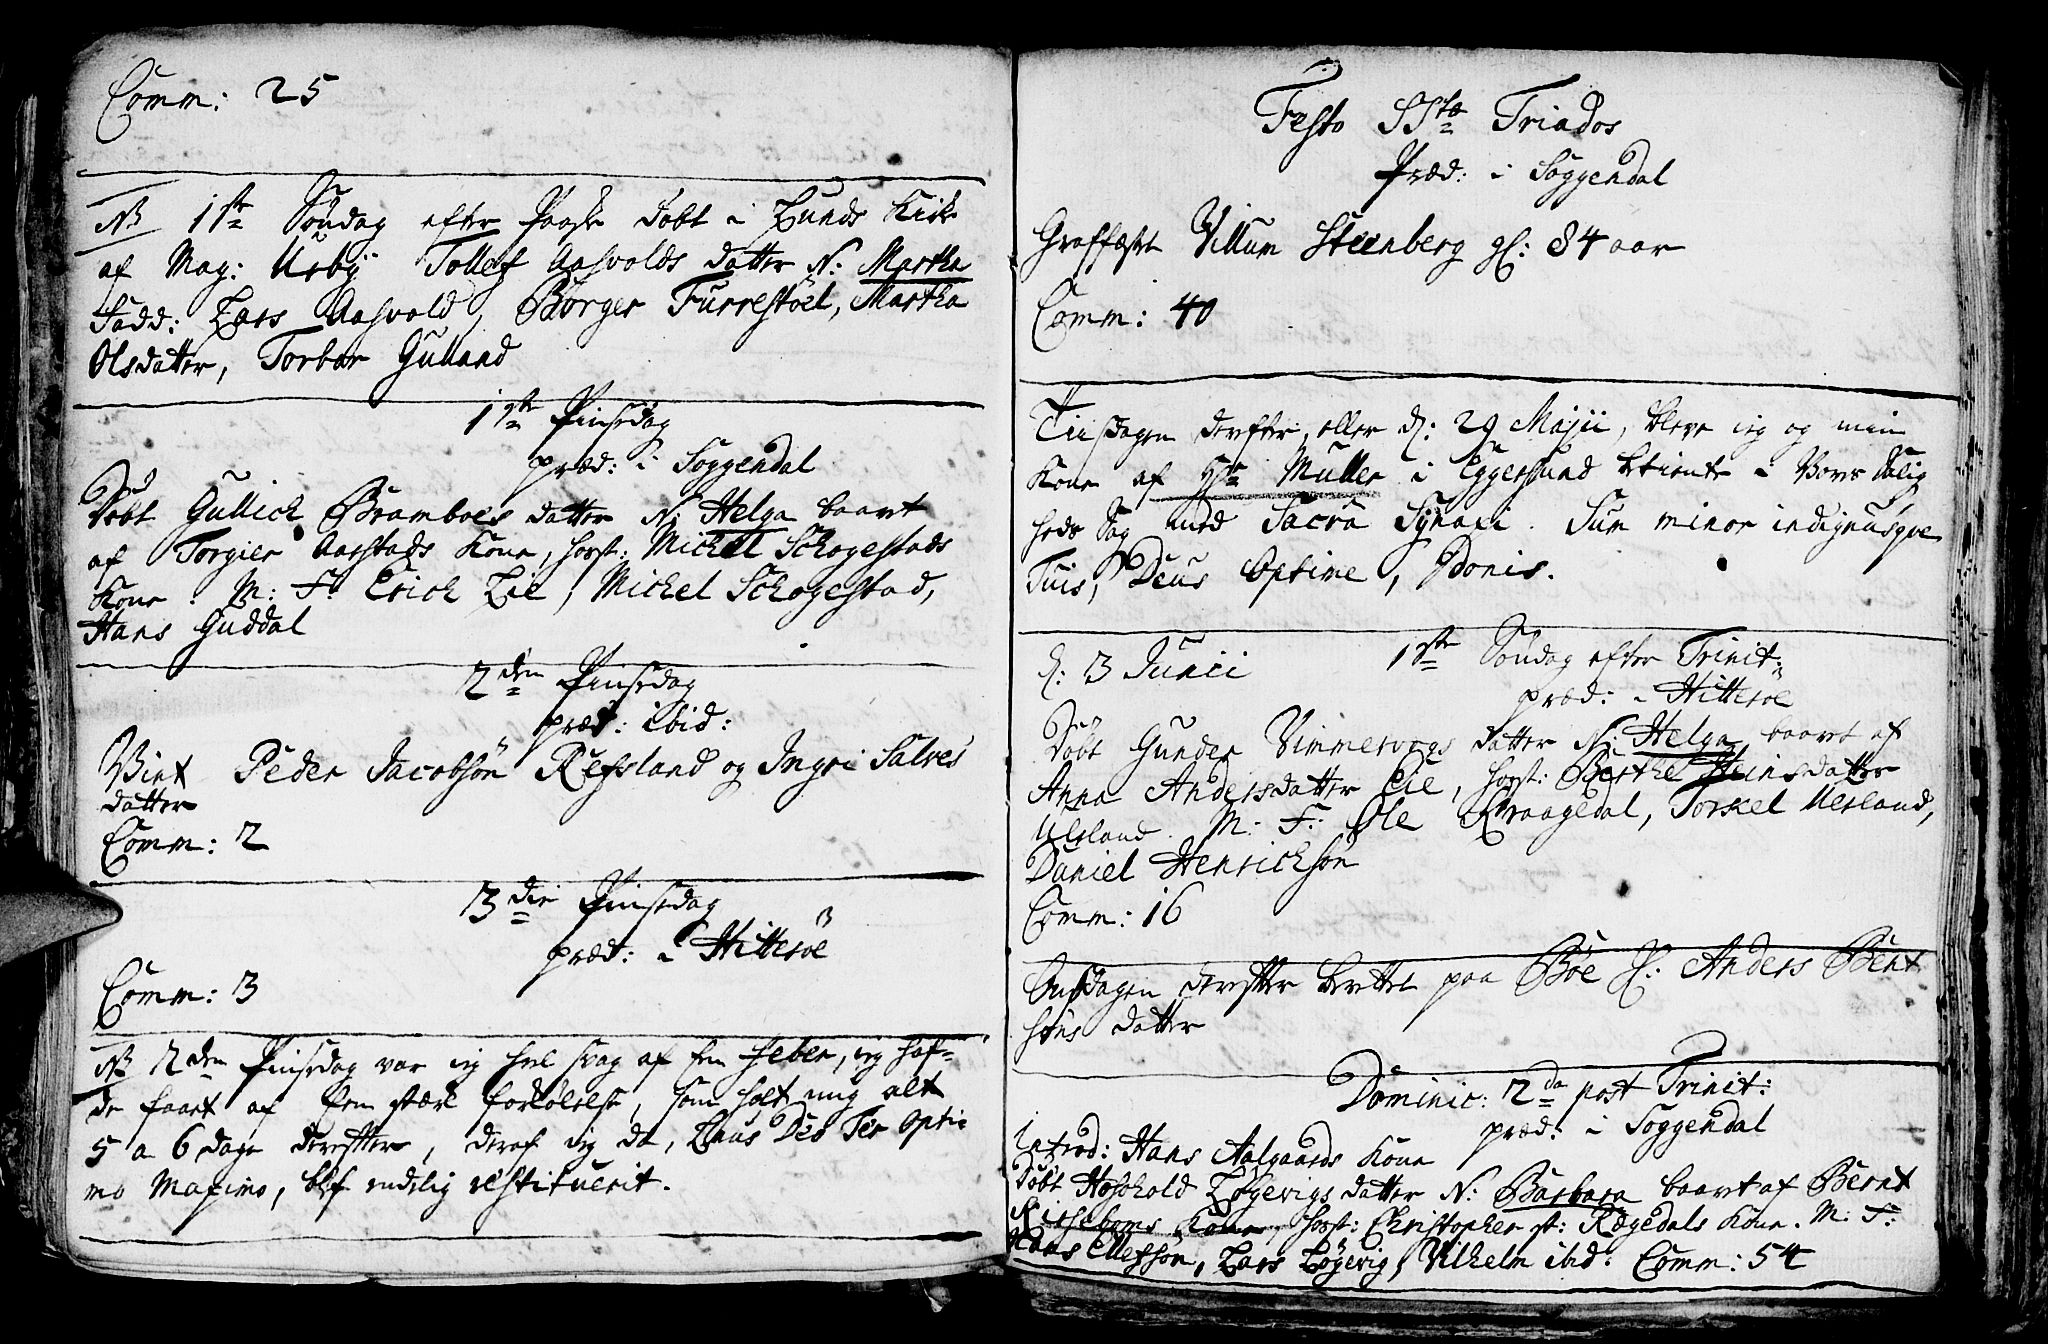 Comm: 25
NB 1ste Søndag efter Paaske døbt i Lunds Kirke
af Mag: Urbÿ Tollef Aasvolds datter N: Martha
Fadd: Lars Aasvold, Börger Furrestöel, Martha
Olsdatter, Torbor Gulland
1ste Pinsedag
præd: i Soggendal
Döbt Gullich Bramboes datter N: Helga baaret
af Torgier Aarstads Kone, horst: Michel Schogestads
Kone. M: F: Erich Lie, Michel Schogestad,
Hans Guddal
2den Pinsedag
præd: ibid:
Viet Peder Jacobsön Refsland og Ingri Salves
datter
Comm: 2
3die Pinsedag
præd: i Hitteröe
Comm: 3
NB 2den Pinsedag var ieg hel svag af en Feber, ieg haf-
de faaet af en stærk forkölelse, som holt mig alt
5 a 6 dage derefter, deraf ieg da, Laus Deo Ter Opti-
mo Maximo, blef endelig restituerit.
Festo SSte Triados
Præd: i Soggendal
Graffæstet Villum Steenberg gl: 84 aar
Comm: 40
Tiisdagen derefter, eller d: 29 Majii, bleve ieg og min
Kone af Hr Müller i Eggersund betient i Vores Salig
heds Sag med Sacra Synaxi. Sum minor indignusqve
Tuis, Deus Optime, Donis.
d: 3 Junii 1ste Söndag efter Trinit:
præd: i Hitteröe
Döbt Gunder Vimmervogs datter N: Helga baaret af
Anna Andersdatter Eie, horst: Berthe Steinsdatter
Ulsland. M: F: Ole Kraagedal, Torkel Ulsland,
Daniel Henrichsön
Comm: 16
Onsdagen derefter berettet paa Böe Anders Bent
söns datter
Dominic: 2da post Trinit:
præd: i Soggendal
Introd: Hans Aalgaards Kone
Döbt Hosvold Lögevigs datter N: Barbara baaret af Bernt
Kone, horst: Christopher Rægedals Kone. M: F:
Claus Ellefsön, Lars Lögevig, Vilhelm ibid: Comm: 54